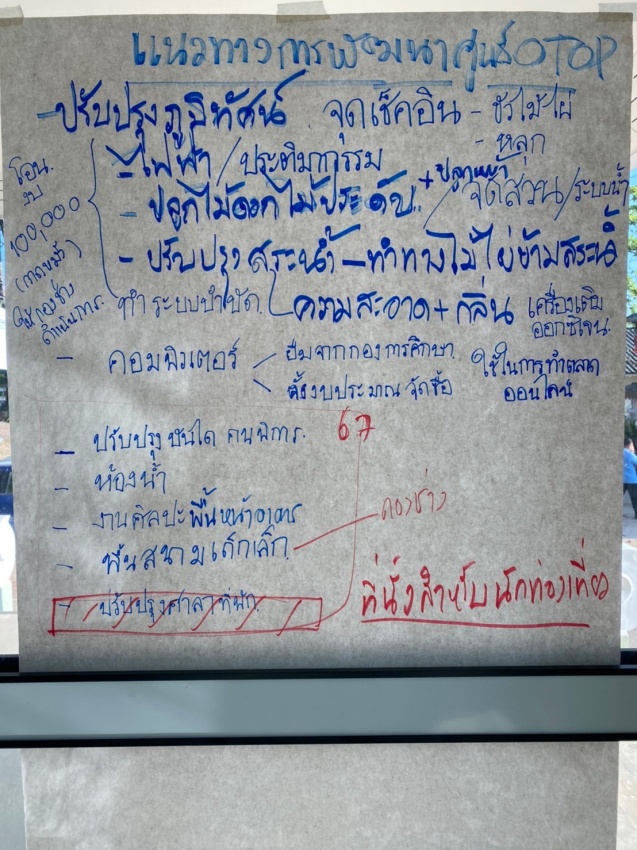 แนวทางการพัฒนาศูนย์ OTOP
- ปรับปรุงภูมิทัศน์ จุดเช็คอิน - ชิงไม้ไผ่
- หลุก
- ไฟฟ้า / ประติมากรรม
- ปลูกไม้ดอกไม้ประดับ + ปลูกหญ้า / จัดสวน / ระบบน้ำ
โอน งบ 100,000
ให้กองช่าง
ดำเนินการ
- ปรับปรุงสระน้ำ - ทำทางไม้ไผ่ข้ามสระน้ำ
ทำระบบบำบัด ความสะอาด + กลิ่น เครื่องเติม
ออกซิเจน
- คอมพิวเตอร์ ยืมจากกองการศึกษา ใช้ในการทำตลาด
ตั้งงบประมาณจัดซื้อ ออนไลน์
67
- ปรับปรุงบันไดคนพิการ
- ห้องน้ำ
- งานศิลปะพื้นหน้าอาคาร
- พื้นสนามเด็กเล็ก กองช่าง
- ปรับปรุงศาลาที่พัก
ที่นั่งสำหรับนักท่องเที่ยว